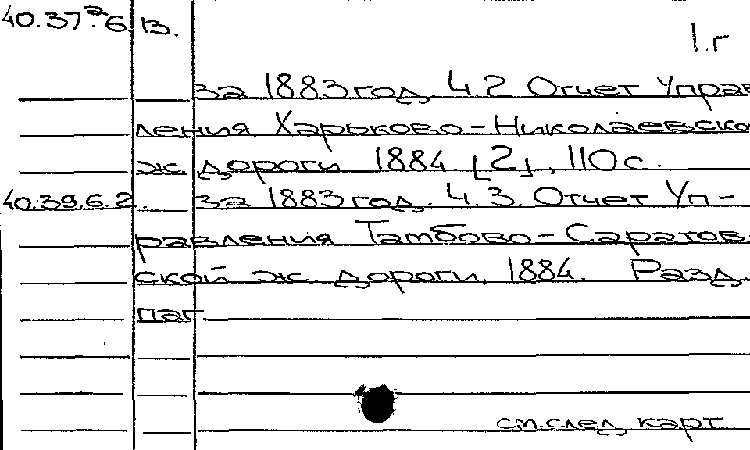 40.37.²6 в.
1.г
за 1883 год. Ч.2 Отчет Управ
ления Харьково-Николаевско
ж дороги 1884 [2], 110 с.
40.39.6.2. за 1883 год. Ч.3. Отчет Уп-
равления Тамбово-Саратов-
ской ж. дороги. 1884. Разд.
паг
см.след. карт